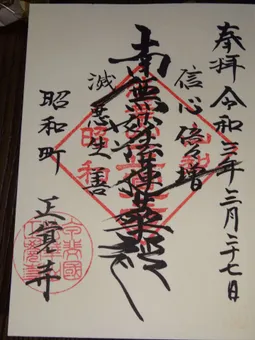 奉拝 令和三年三月二十七日
信心倍増
南無妙法蓮華経
滅悪生善
昭和町 正覚寺
昭和